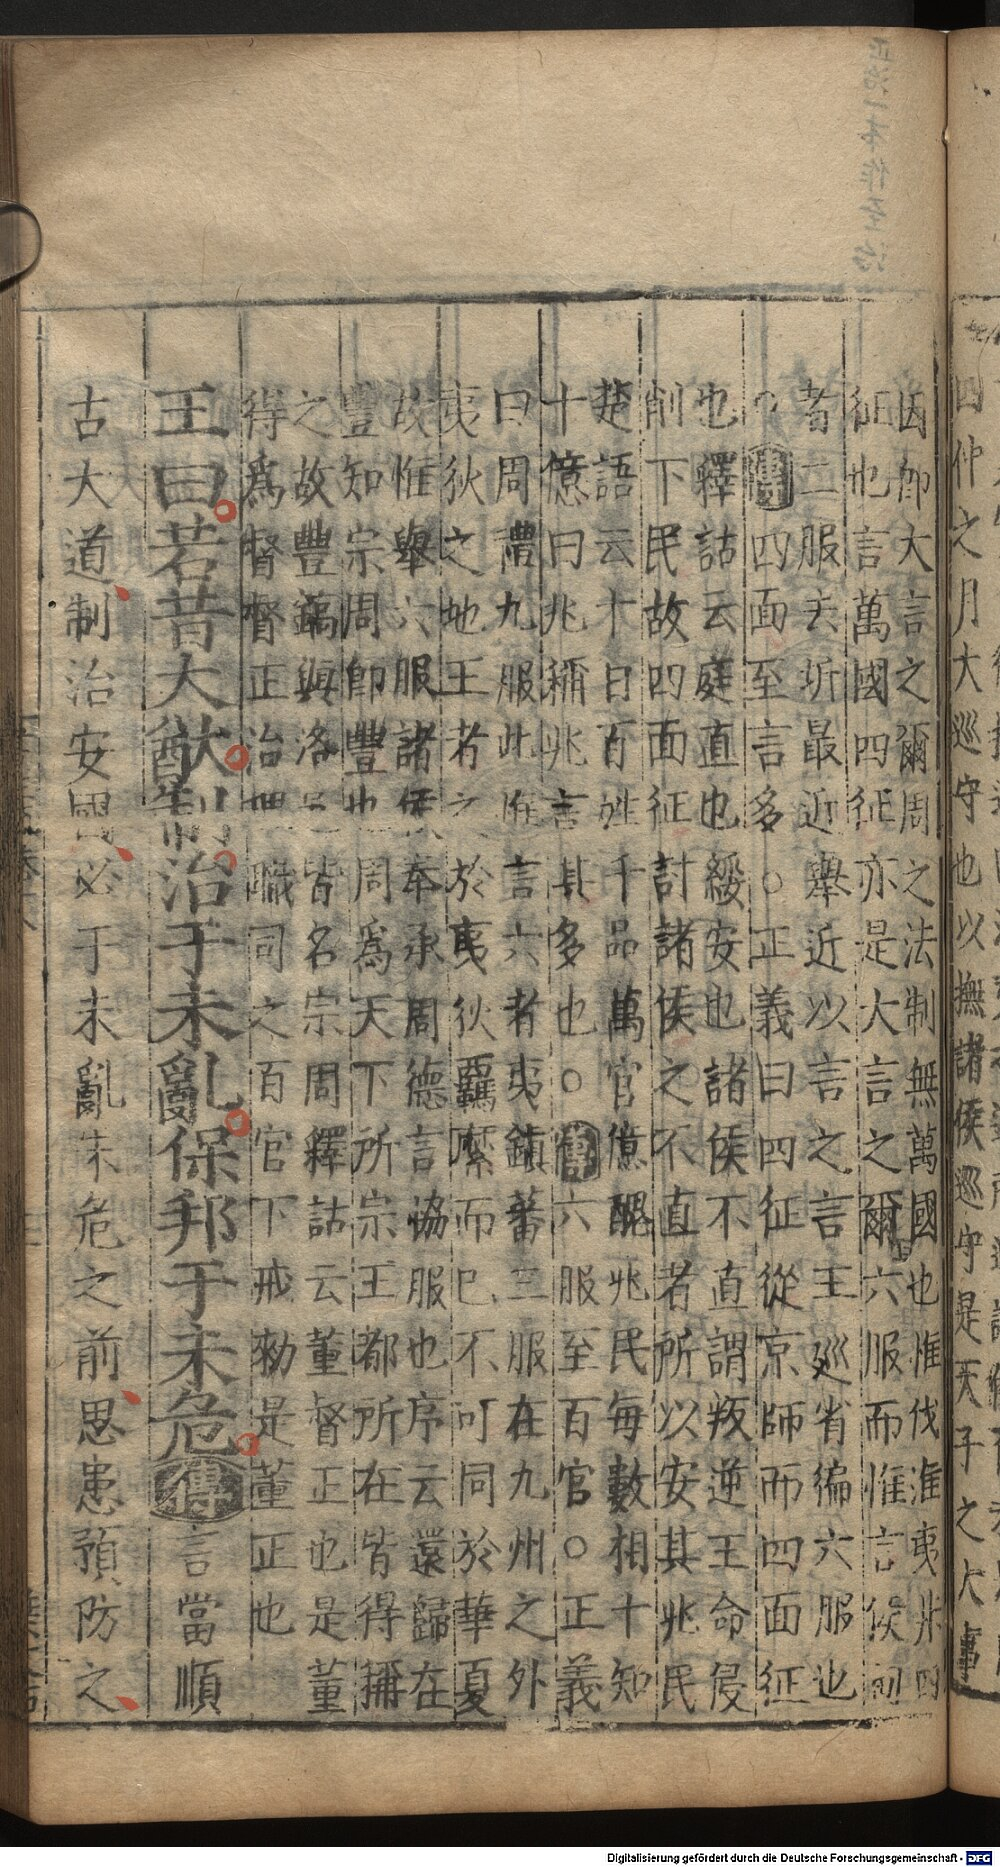 因即大言之爾周之法制無萬國也惟伐淮夷非四
征也言萬國四征亦是大言之爾六服而惟言侯甸
者二服去圻最近舉近以言之言王巡省徧六服也
傳四面至言多○正義曰四征從京師而四面征
也釋詁云庭直也綏安也諸侯不直謂叛逆王命侵
削下民故四面征討諸侯之不直者所以安其兆民
楚語云十日百姓千品萬官億醜兆民每數相十知
十億曰兆稱兆言其多也○傳六服至百官○正義
曰周禮九服此惟言六者夷鎮蕃三服在九州之外
夷狄之地王者之於夷狄羈縻而已不可同於華夏
故惟舉六服諸侯奉承周德言協服也序云還歸在
豐知宗周即豐也周爲天下所宗王都所在皆得稱
之故豐鎬與洛邑皆名宗周釋詁云董督正也是董
得爲督督正治理職司之百官下戒勑是董正也
王曰若昔大猷制治于未亂保邦于未危傳言當順
古大道制治安國必于未亂未危之前思患預防之
四仲之月大巡守也以撫諸侯巡守是天子之大事
Digitalisierung gefördert durch die Deutsche Forschungsgemeinschaft - DFG